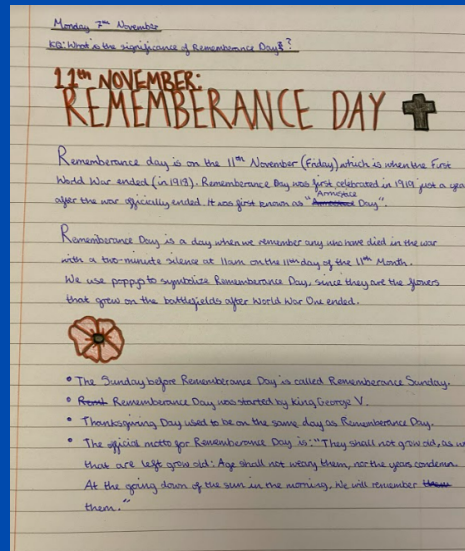 Monday 7th November
KQ: What is the significance of Rememberance Day?
11th NOVEMBER:
REMEMBERANCE DAY
Rememberance day is on the 11th November (Friday) which is when the First
World War ended (in 1918). Rememberance Day was first celebrated in 1919 just a year
after the war officially ended. It was first known as "Armistace Day".
Rememberance Day is a day when we remember any who have died in the war
with a two-minute silence at 11am on the 11th day of the 11th Month.
We use poppys to symbolize Rememberance Day, since they are the flowers
that grew on the battlefields after World War One ended.
• The Sunday before Rememberance Day is called Rememberance Sunday.
• Rememberance Day was started by King George V.
• Thanksgiving Day used to be on the same day as Rememberance Day.
• The official motto for Rememberance Day is: "They shall not grow old, as we
that are left grow old: Age shall not weary them, nor the years condemn.
At the going down of the sun in the morning, We will remember
them."